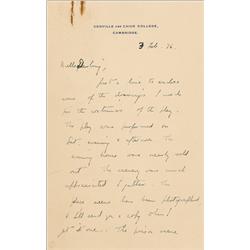 GONVILLE AND CAIUS COLLEGE,
CAMBRIDGE.
Feb. 36.
Hello Darling,
Just a line to enclose
some of the drawings I made
for the costumes of the play.
The play was performed on
Sat. evening & afternoon. The
evening house was nearly sold
out. The scenery was much
appreciated I gather. The
scenes have been photographed
& I'll send you a copy when I
get d'one. The prison scene